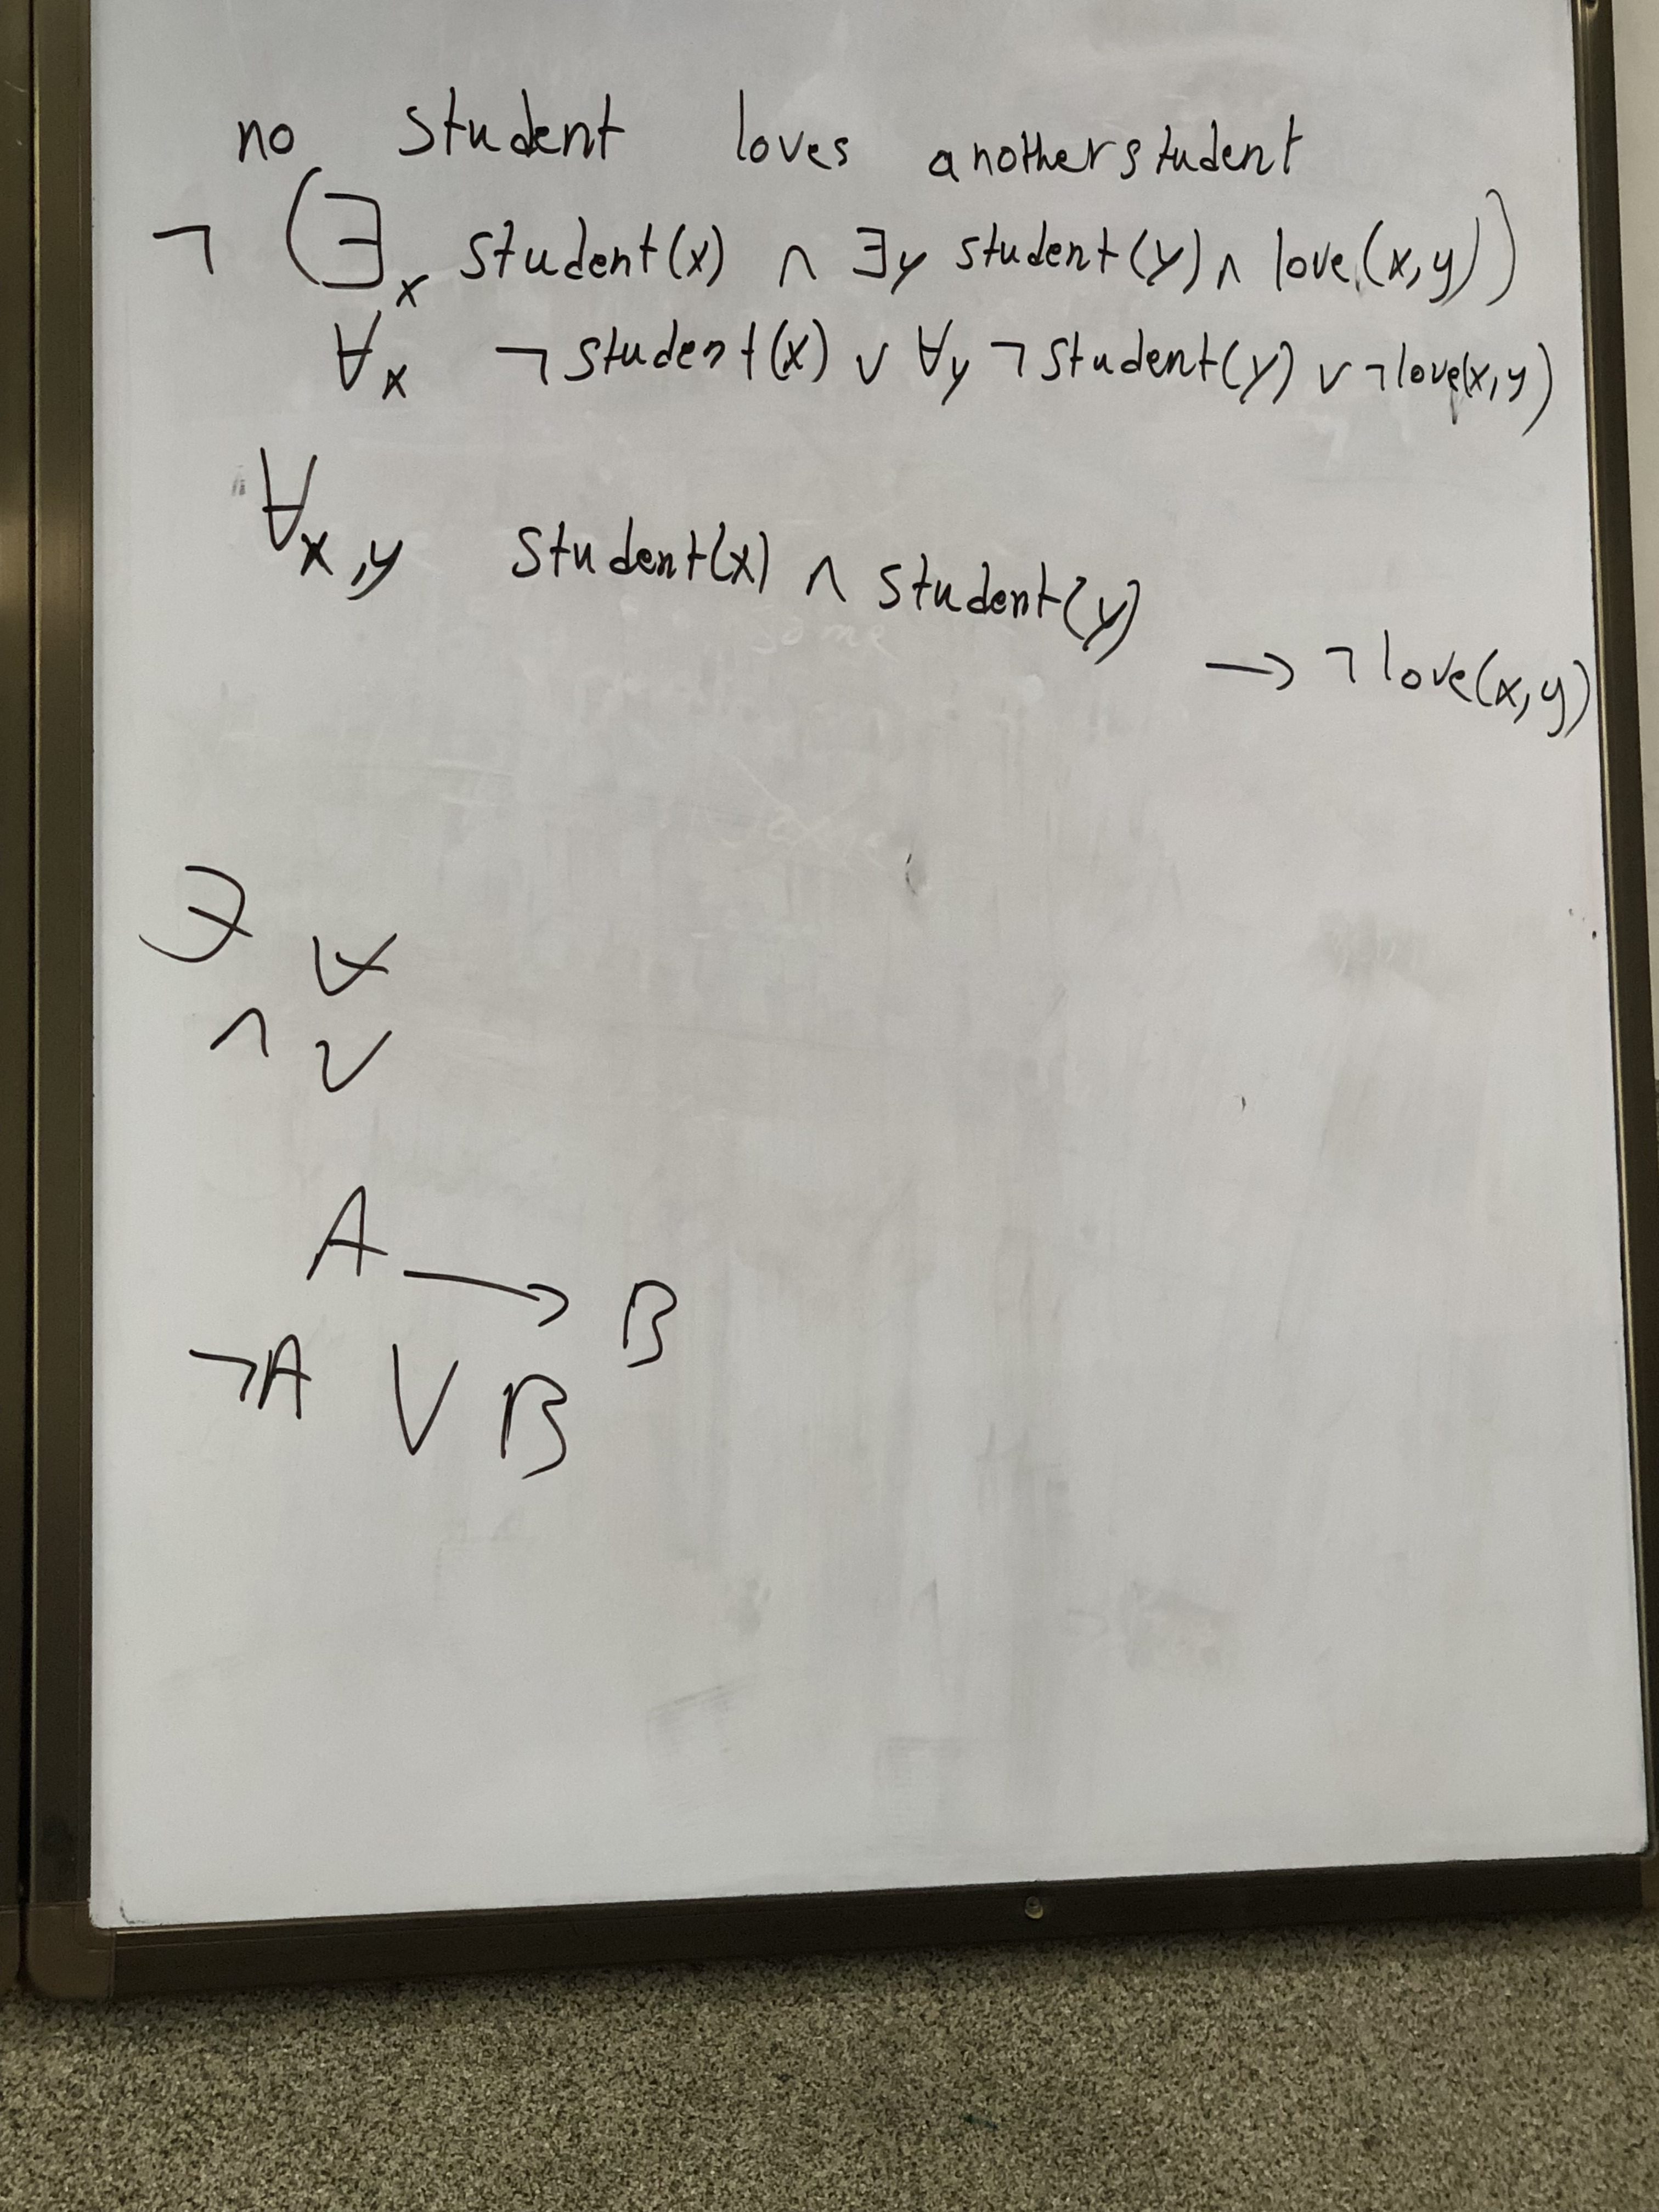 no student loves another student
¬ (∃x student(x) ∧ ∃y student(y) ∧ love(x,y))
∀x ¬student(x) ∨ ∀y ¬student(y) ∨ ¬love(x,y)
∀x,y student(x) ∧ student(y)
→ ¬love(x,y)
some
∃ ∀
∧ ∨
A → B
¬A ∨ B